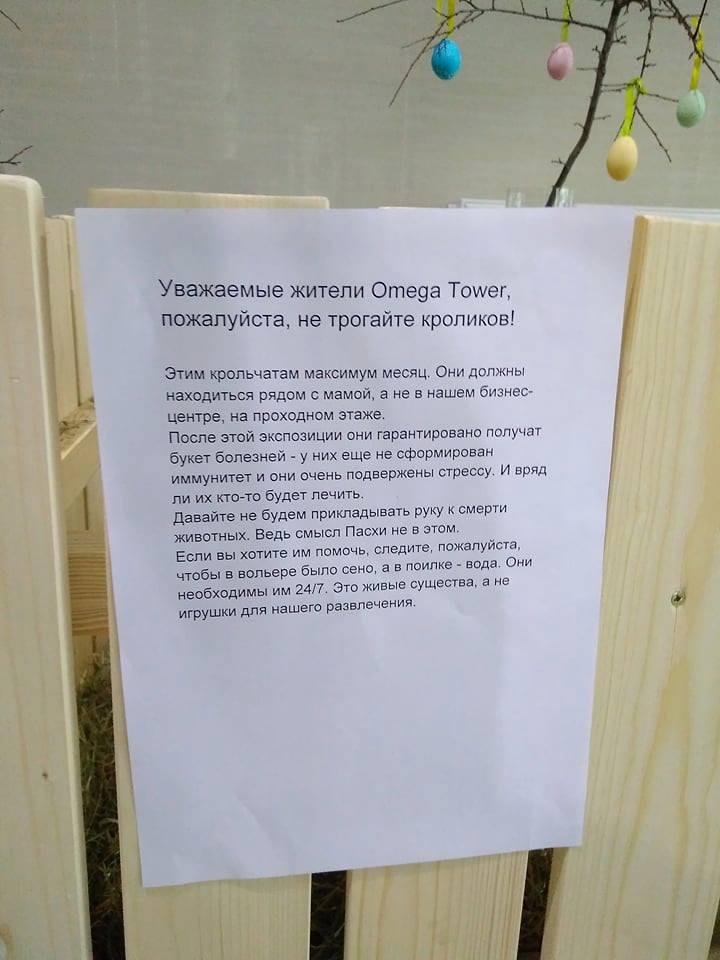 Уважаемые жители Omega Tower,
пожалуйста, не трогайте кроликов!
Этим крольчатам максимум месяц. Они должны
находиться рядом с мамой, а не в нашем бизнес-
центре, на проходном этаже.
После этой экспозиции они гарантировано получат
букет болезней - у них еще не сформирован
иммунитет и они очень подвержены стрессу. И вряд
ли их кто-то будет лечить.
Давайте не будем прикладывать руку к смерти
животных. Ведь смысл Пасхи не в этом.
Если вы хотите им помочь, следите, пожалуйста,
чтобы в вольере было сено, а в поилке - вода. Они
необходимы им 24/7. Это живые существа, а не
игрушки для нашего развлечения.